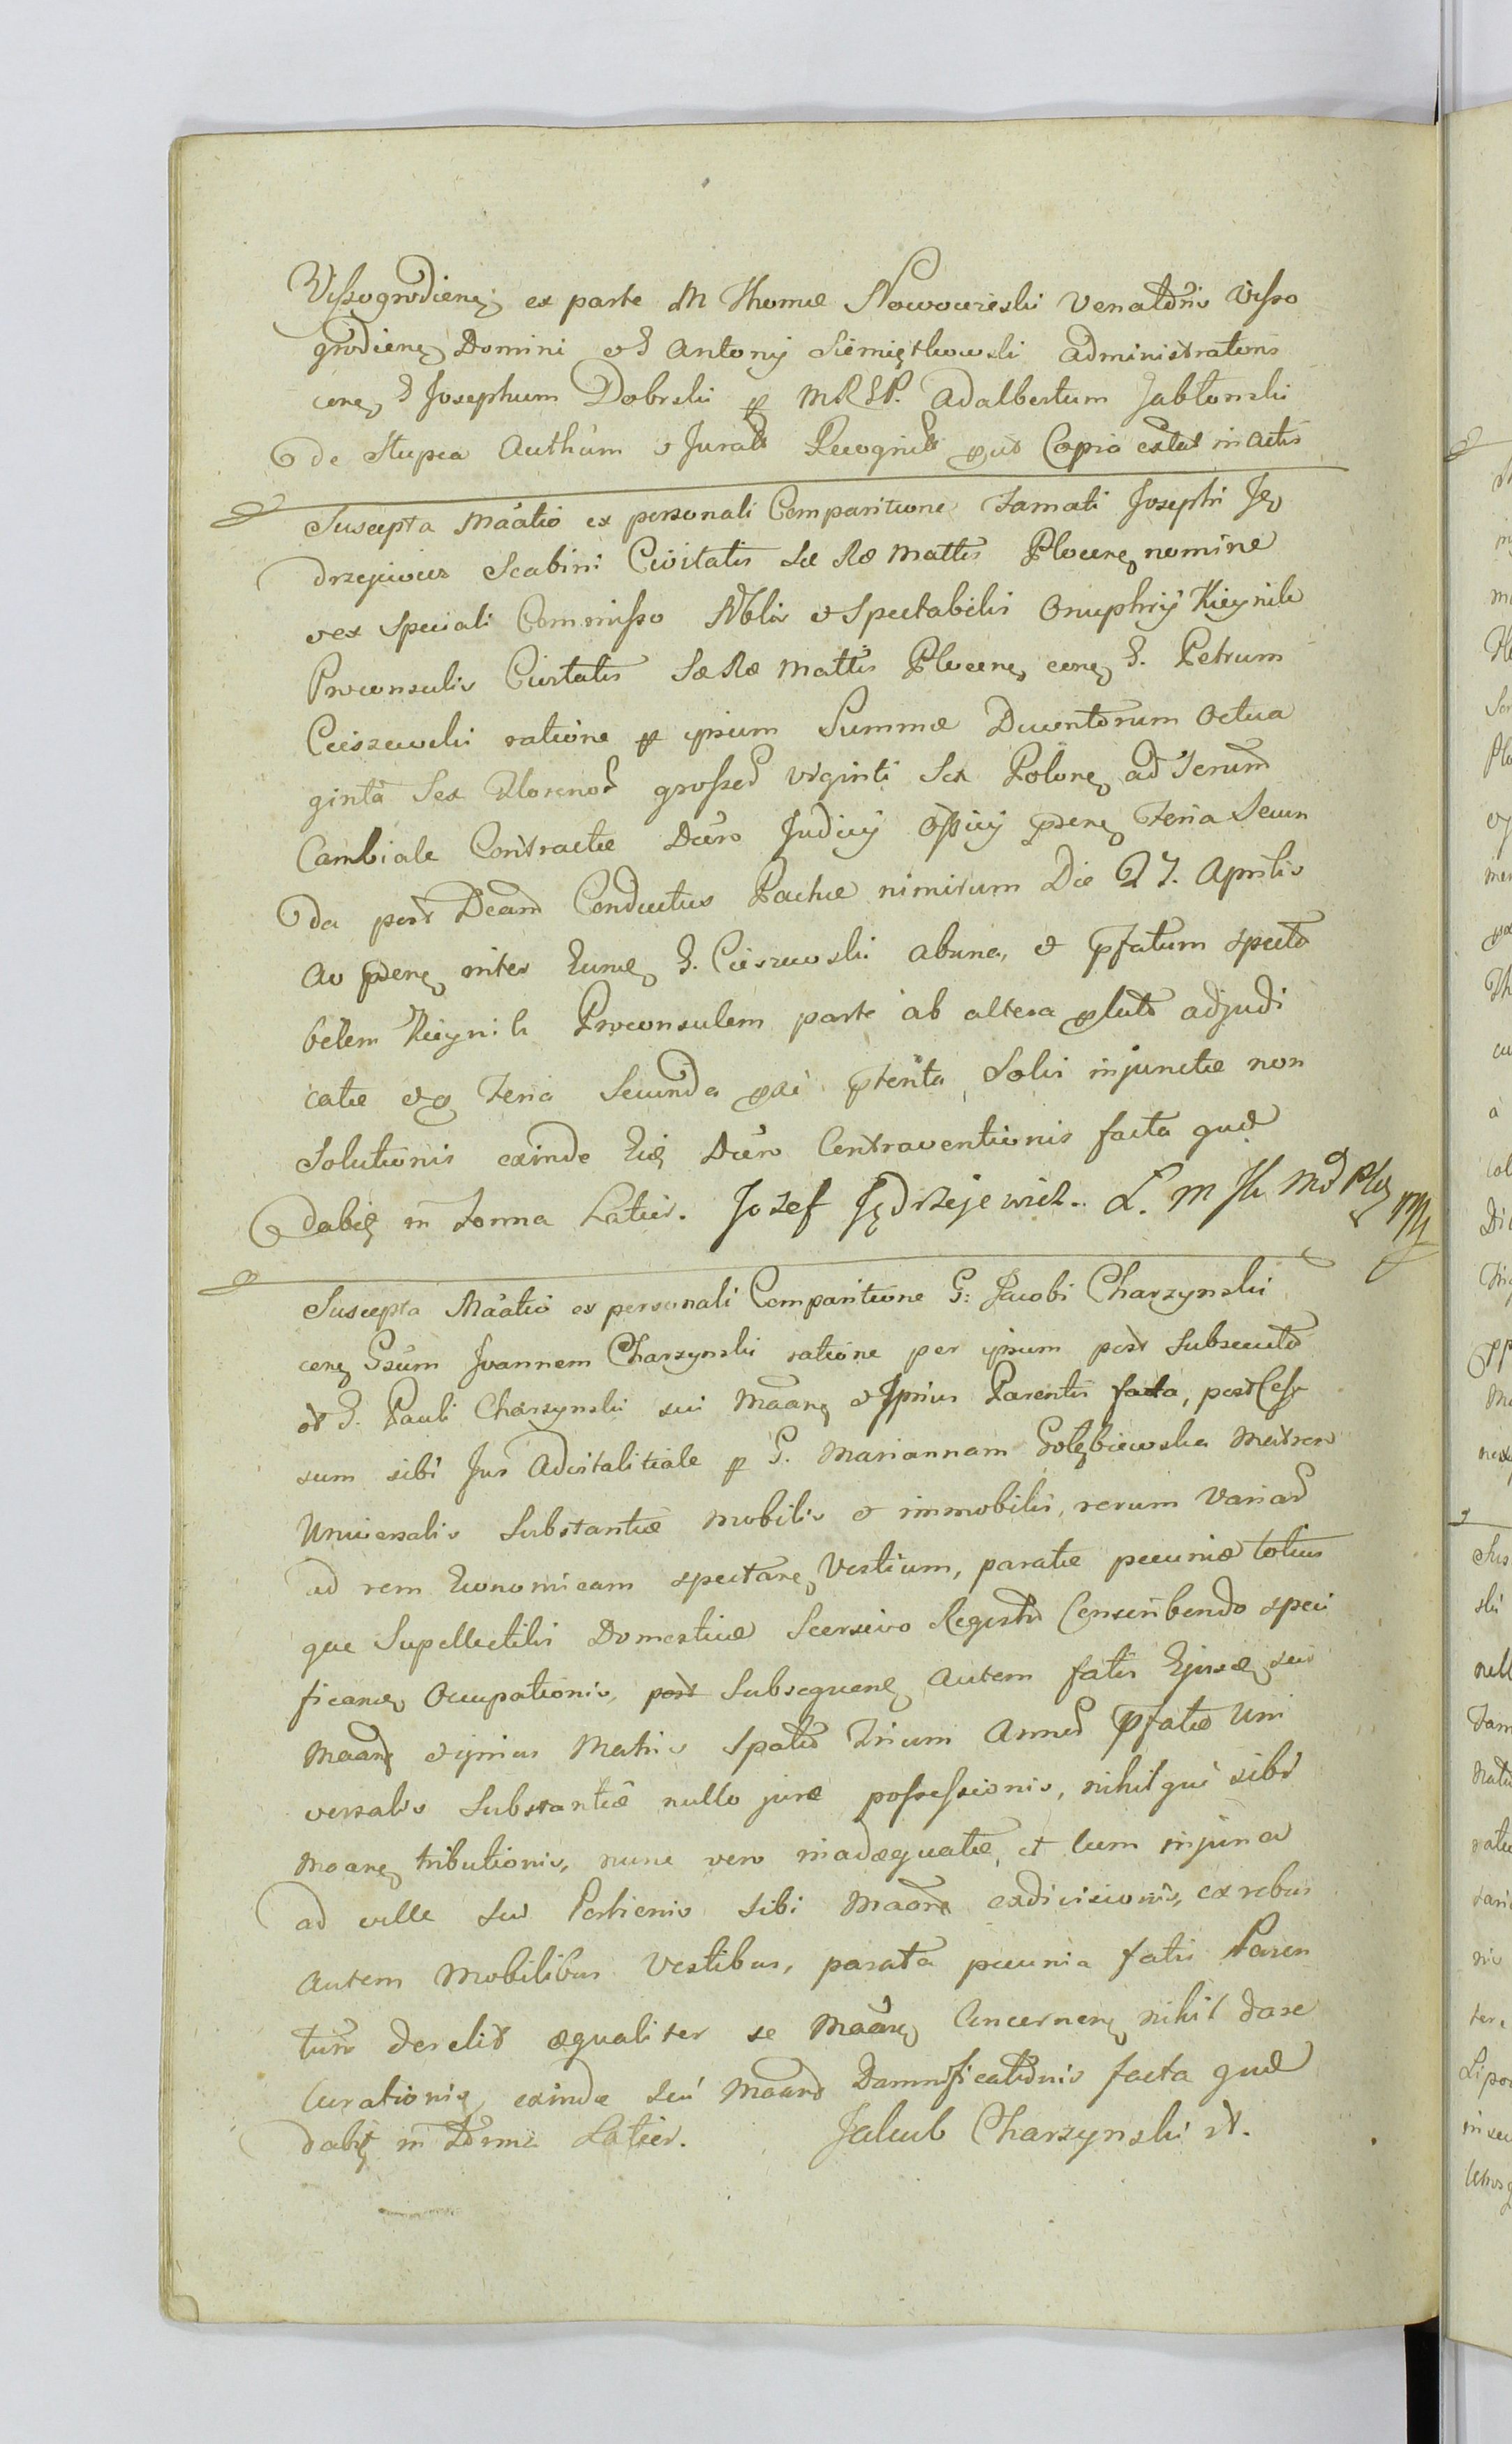 Vissogrodienę ex parte M Thomæ Nowowieski Venatoris Visso
grodienę Domini et G Antonij Siemiątkowski Administratoris
cerę G Josephum Dobrski p MRSP. Adalbertum Jabłonski
de Stupca Authum et Jurati Recognit put Copia extat in actis
Suscepta Maatio ex personali Comparitione Famati Josephi Ję
drzejewicz Scabini Civitatis Sæ Ræ Mattis Plocenę nomine
et ex Speciali Commisso Nblis et Spectabilis Onuphrij Kieynik
Proconsulis Civitatis Sæ Ræ Mattis Plocenę cerę G. Petrum
Cieszewski ratione p ipsum Summæ Ducentorum Octua
ginta Sex Florenor grossor viginti Sex Polonę ad
Cambiale Contractæ Decro Judicij Officij psenę Feria Secun
da post Dcam Conductus Paschæ nimirum Die 27. Aprilis
Ao psenę inter Eunę G. Cieszewski ab una, et pfatum specta
bilem Kieynik Proconsulem parte ab altera plato adjudi
catæ et p Feria Secunda pterita Solvi injunctæ non
Solutionis exinde Ejs Decro Contraventionis facta quæ
dabit in Forma Latior. Jozef Jędrzejewicz.. Ł. m
Suscepta Maatio ex personali Comparitione G: Jacobi Charzynski
cerę Gsum Joannem Charzynski ratione per ipsum post subsecuta
G. Pauli Charzynski sui Maanę et Ipsius Parentis fata, post Ces
sum sibi Jus Advitalitiale p G. Mariannam Gołębiewska Matrem
Universalis Substantiæ mobilis et immobilis, rerum Variar
ad rem Economicam spectanę, Vestium, paratæ pecuniæ totius
que Supellectilis Domesticæ Seorsivo Regestro Conscribendo speci
ficandę Occupationis, post Subsequenę autem fatis Ejusdę sui
Maanę et ipsius Matris Spatio Trium Annor pfatæ Uni
versalis Substantiæ nullo jure possessionis, nihilque sibi
Maanę tributionis, nunc vero inadæquatæ, et cum injuria
ad velle suum Portionis sibi Maanę exdivisionis, ex rebus
autem Mobilibus Vestibus, parata pecunia fatis Paren
tum derelict æqualiter se Maanę Concernenę nihil dare
Curationis, exinde sui Maanę Damnificationis facta quæ
dabit in Forma Latior. Jakub Charzynski